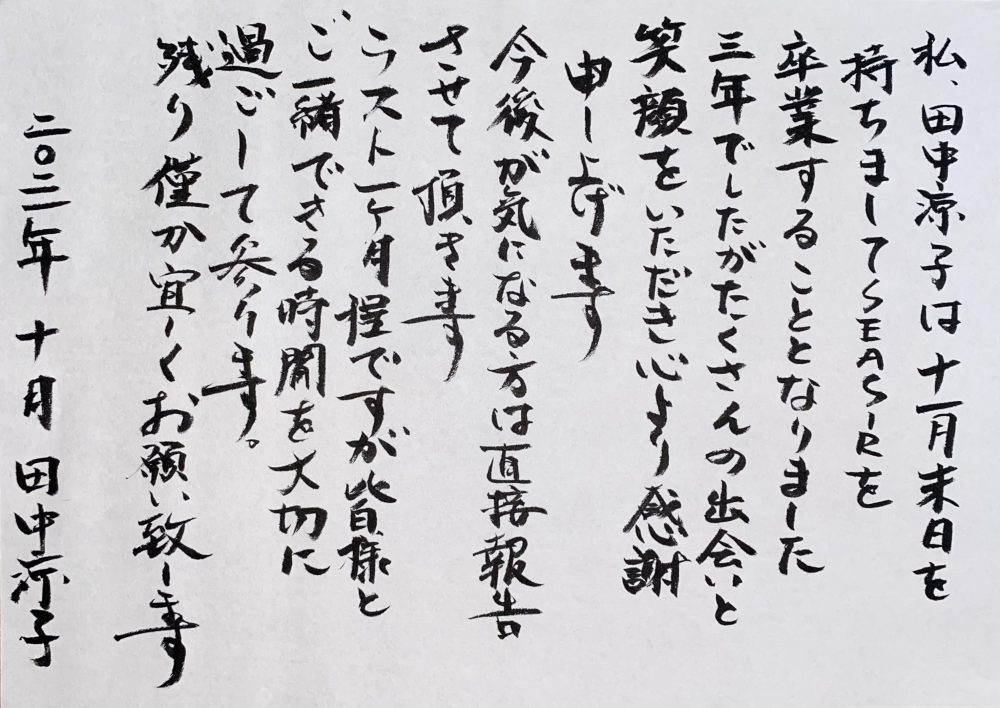 私、田中涼子は十一月末日を
持ちましてSEASIRを
卒業することとなりました
三年でしたがたくさんの出会いと
笑顔をいただき心より感謝
申し上げます
今後が気になる方は直接報告
させて頂きます
ラスト一ヶ月程ですが皆様と
ご一緒できる時間を大切に
過ごして参ります。
残り僅か宜しくお願い致します
二〇二二年 十月 田中涼子